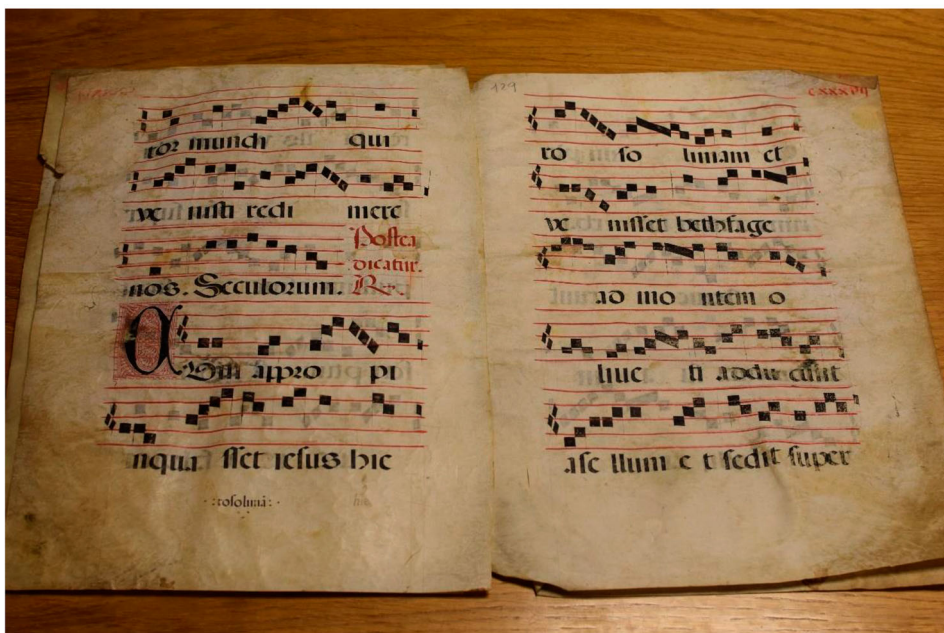 tor mundi qui
ve nisti redi mere
Postea
nos. Seculorum.
dicatur.
Rx.
Cum appro pi
nqua sset iesus hie
:rosolimā:
129
ro so limam et
ve nisset bethfage
ad mo ntem o
live ti addu cunt
ase llum e t sedit super